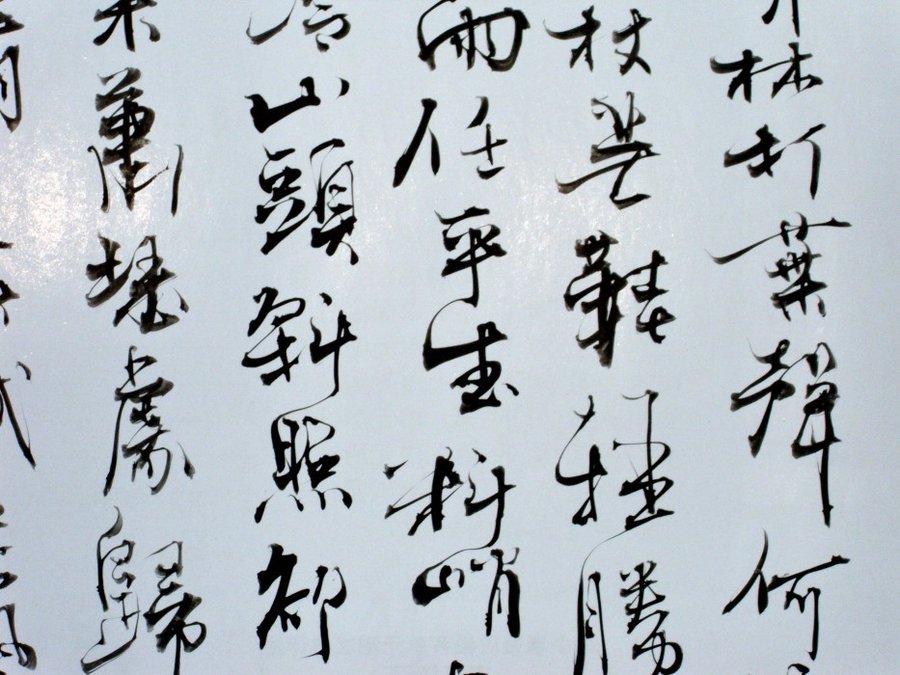 林打葉聲何
杖芒鞋輕勝
雨任平生料峭
冷山頭斜照卻
來蕭瑟處歸